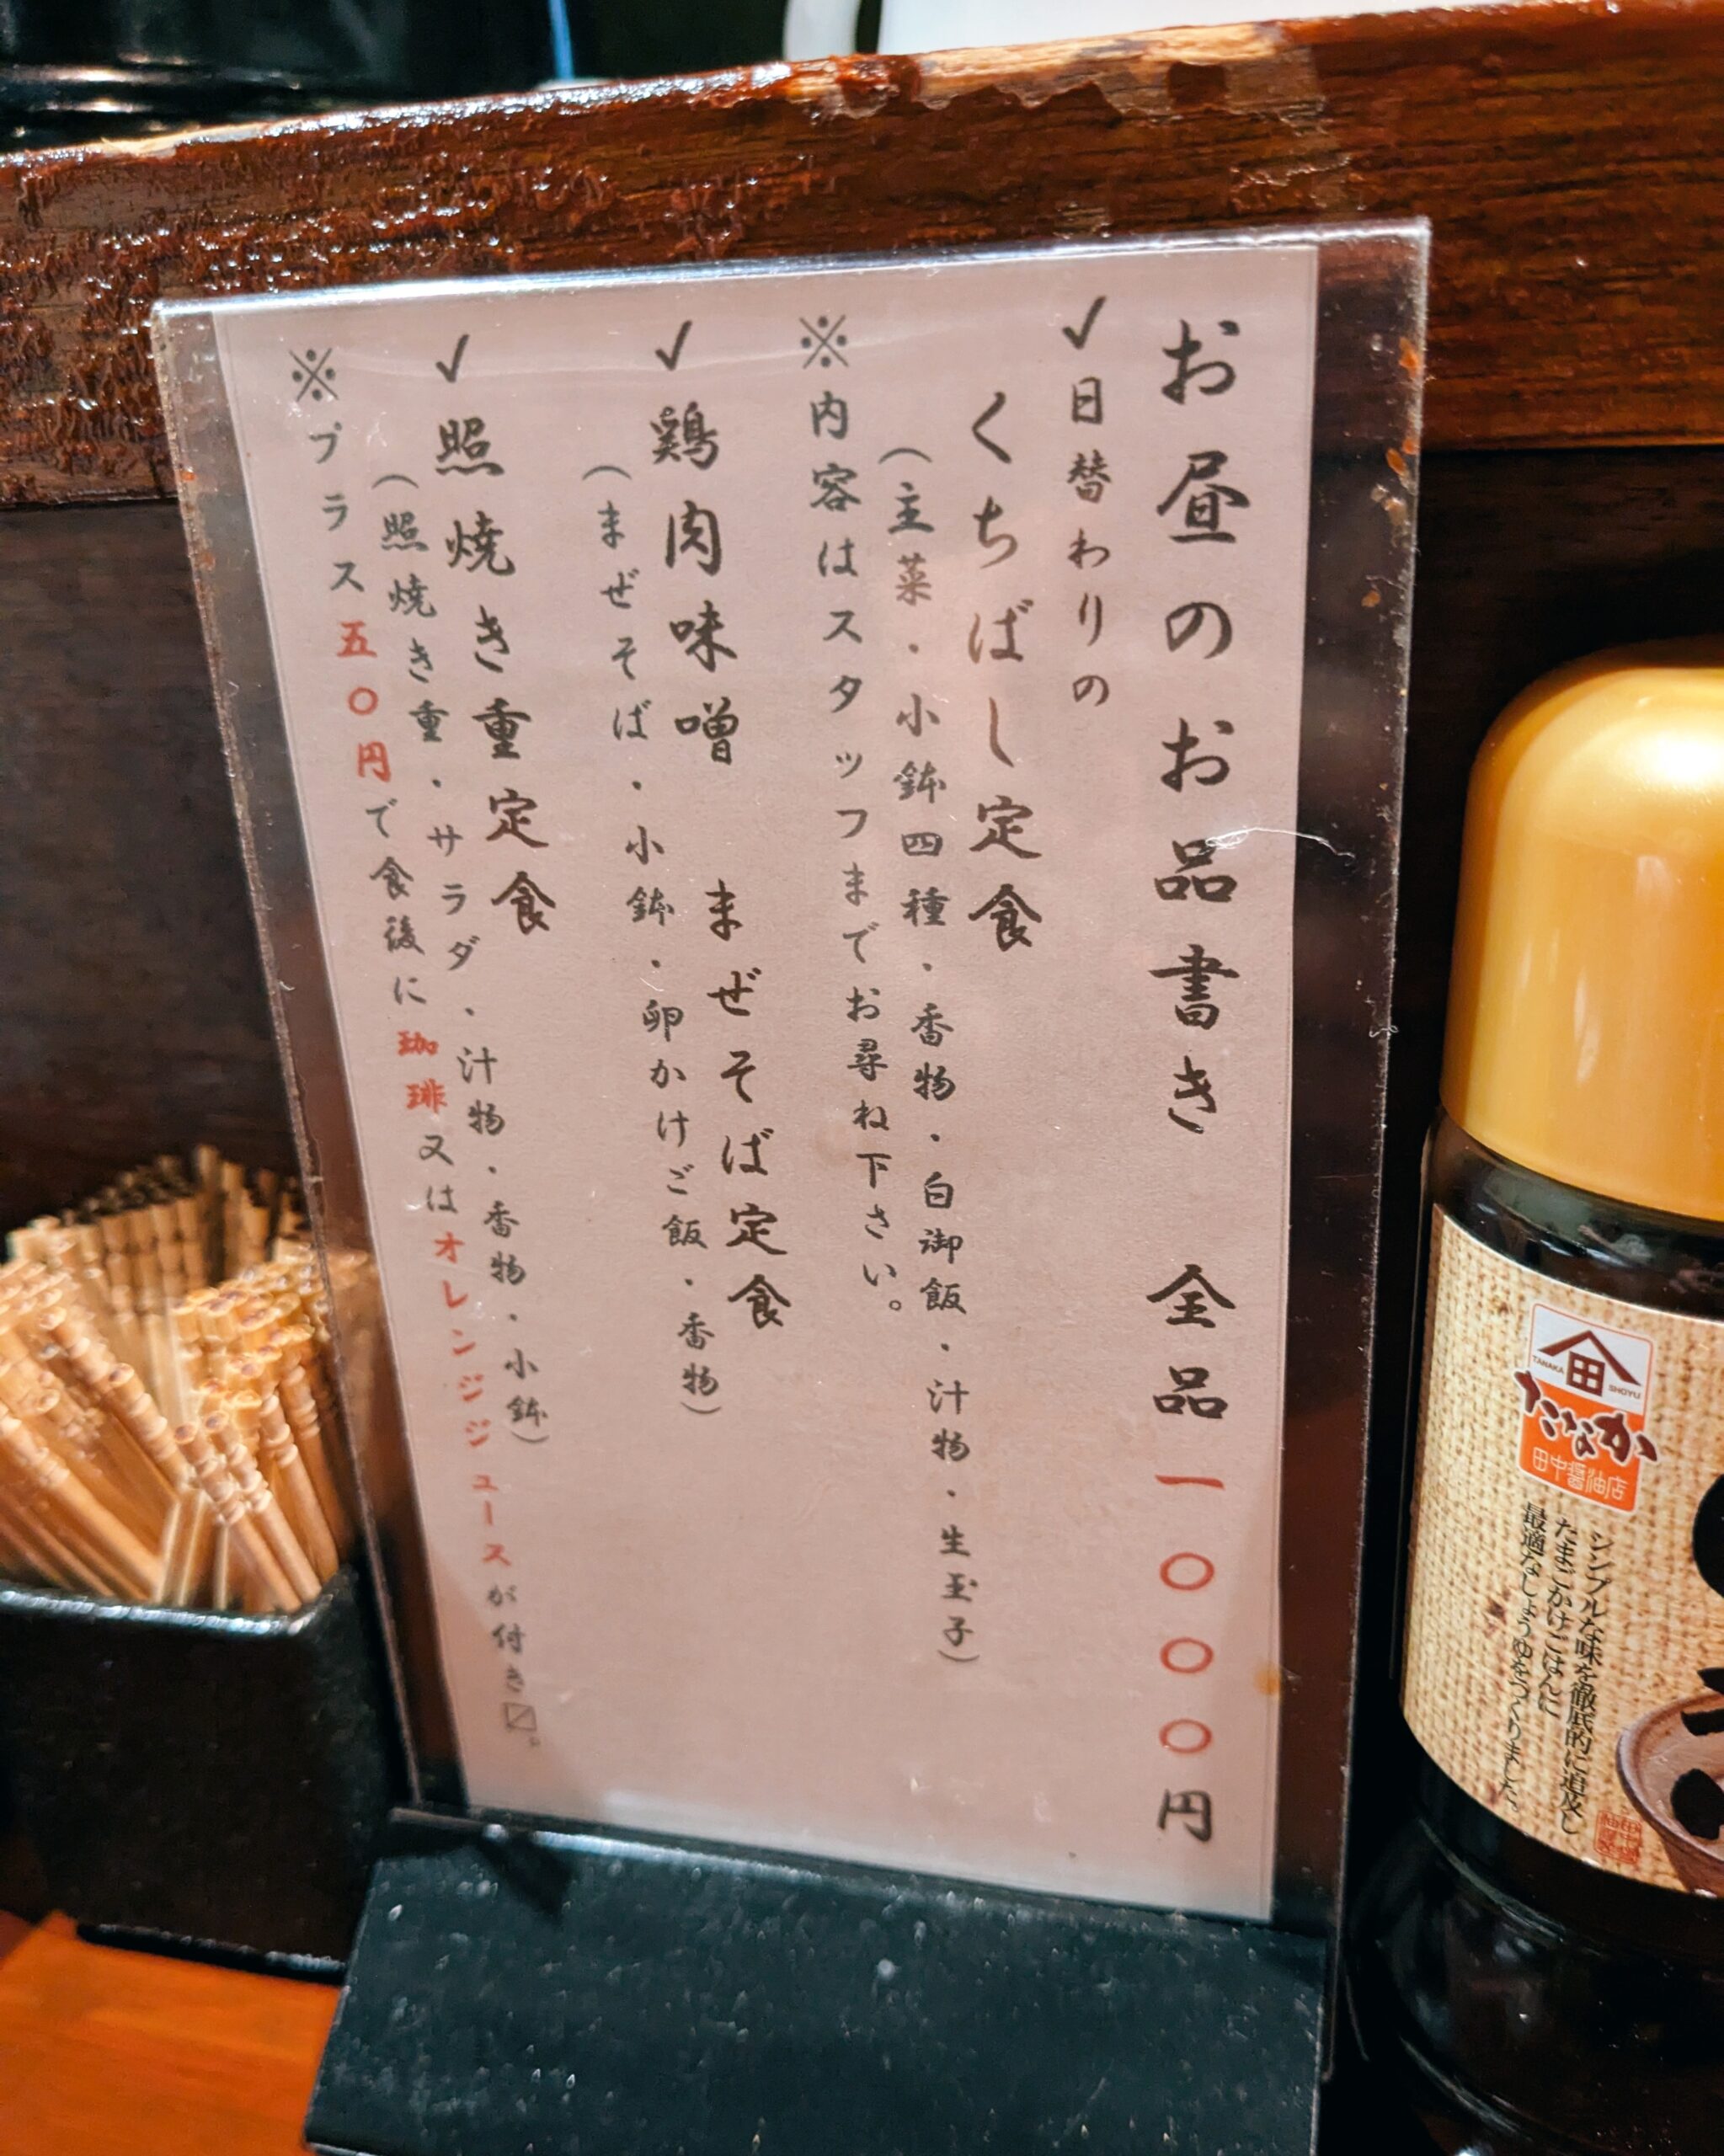 お昼のお品書き　全品一〇〇〇円
✓日替わりの
くちばし定食
（主菜・小鉢四種・香物・白御飯・汁物・生玉子）
※内容はスタッフまでお尋ね下さい。
✓鶏肉味噌　まぜそば定食
（まぜそば・小鉢・卵かけご飯・香物）
✓照焼き重定食
（照焼き重・サラダ・汁物・香物・小鉢）
※プラス五〇円で食後に珈琲又はオレンジジュースが付き〼。
TANAKA 田 SHOYU
たなか
田中醤油店
シンプルな味を徹底的に追及し
たまごかけごはんに
最適なしょうゆをつくりました。